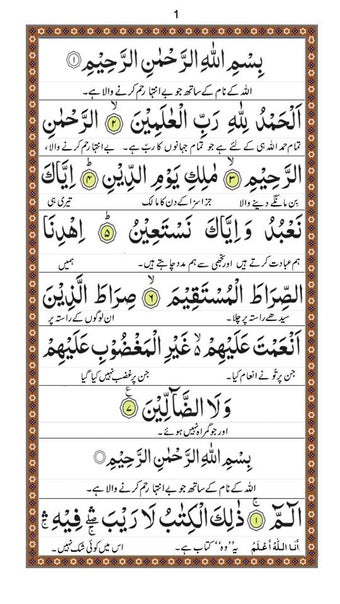 1
بِسْمِ اللّٰهِ الرَّحْمٰنِ الرَّحِيْمِ ۝۱
اللہ کے نام کے ساتھ جو بے انتہا رحم کرنے والا ہے۔
اَلْحَمْدُ لِلّٰهِ رَبِّ الْعٰلَمِيْنَ ۝۲ۙ الرَّحْمٰنِ
تمام حمد اللہ ہی کے لئے ہے جو تمام جہانوں کا ربّ ہے۔ بے انتہا رحم کرنے والا،
الرَّحِيْمِ ۝۳ۙ مٰلِكِ يَوْمِ الدِّيْنِ ۝۴ؕ اِيَّاكَ
بِن مانگے دینے والا جزا سزا کے دن کا مالک تیری ہی
نَعْبُدُ وَاِيَّاكَ نَسْتَعِيْنُ ۝۵ؕ اِهْدِنَا
ہم عبادت کرتے ہیں اور تجھی سے ہم مدد چاہتے ہیں۔ ہمیں
الصِّرَاطَ الْمُسْتَقِيْمَ ۝۶ۙ صِرَاطَ الَّذِيْنَ
سیدھے راستہ پر چلا۔ ان لوگوں کے راستہ پر
اَنْعَمْتَ عَلَيْهِمْ ۙ غَيْرِ الْمَغْضُوْبِ عَلَيْهِمْ
جن پر تُو نے انعام کیا۔ جن پر غضب نہیں کیا گیا
وَلَا الضَّآلِّيْنَ ۝۷
اور جو گمراہ نہیں ہوئے۔
بِسْمِ اللّٰهِ الرَّحْمٰنِ الرَّحِيْمِ
اللہ کے نام کے ساتھ جو بے انتہا رحم کرنے والا ہے۔
الٓمّٓ ۝۱ۚ ذٰلِكَ الْكِتٰبُ لَا رَيْبَ ۛۖ فِيْهِ ۛۚ
اَنَا اللّٰهُ اَعْلَمُ یہ ”وہ“ کتاب ہے۔ اس میں کوئی شک نہیں۔